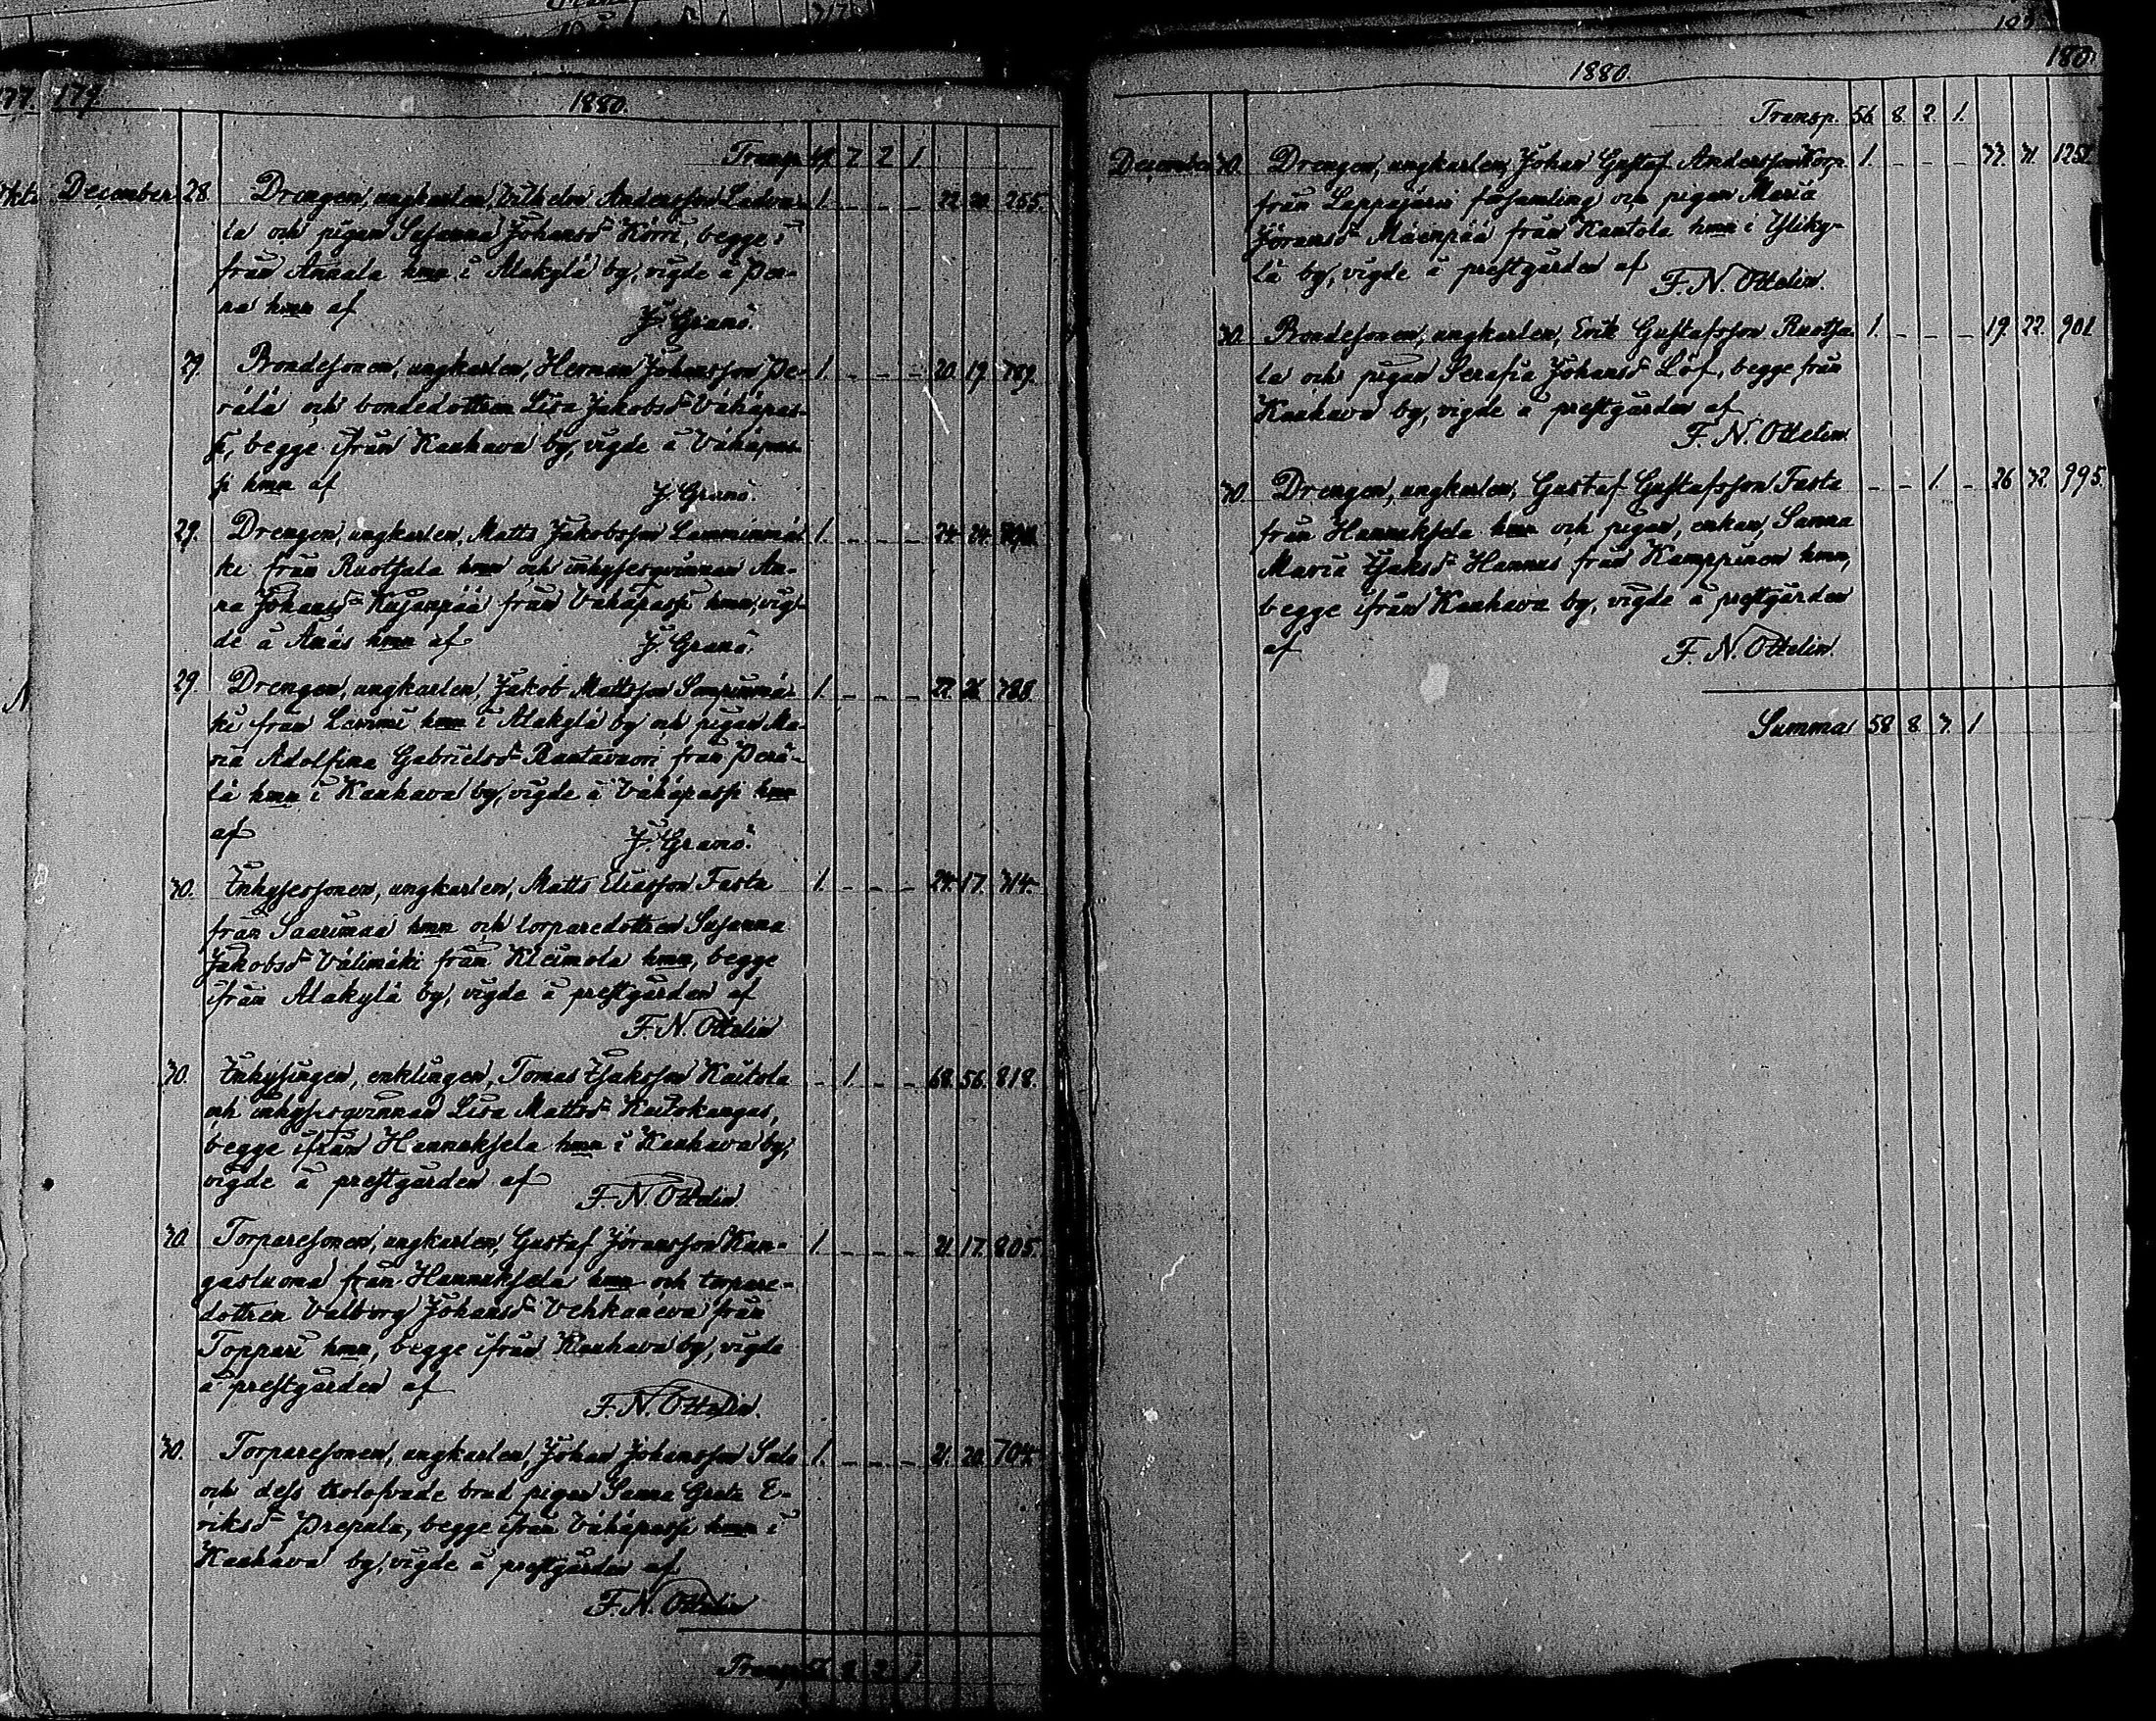 179.
1880.
Transp. 49 7 2 1
December 28. Drengen, ungkarlen, Vilhelm Andersson Ladva- 1. - - - 22. 20. 255.
la och pigan Susanna Johansd:r Körri, begge i
från Annala hmn i Alakylä by, vigde å Per-
na hmn af
J. Granö.
29. Bondesonen, ungkarlen, Herman Johansson Pe- 1. - - - 20. 19. 789.
rälä och bondedottren Lisa Jakobsd:r Vähäpas-
si, begge ifrån Kauhava by, vigde å Vähäpas-
si hmn af
J. Granö.
29. Drengen, ungkarlen, Matts Jakobsson Lamminmä- 1. - - - 24. 24.
ki från Ruotsala hmn och inhysesqvinnan An-
na Johansd:r Kujanpää från Vähäpassi hmn, vig-
de å Ånäs hmn af
J. Granö.
29. Drengen, ungkarlen, Jakob Mattsson Sompinmä- 1. - - - 22. 26. 788.
ki från Lammi hmn i Alakylä by och pigan Ma-
ria Adolfina Gabrielsd:r Rantavuori från Perä-
lä hmn i Kauhava by, vigde å Vähäpassi hmn
af
J. Granö.
30. Inhysessonen, ungkarlen, Matts Eliasson Fasta 1. - - - 24. 17. 714.
från Saarimaa hmn och torparedottren Susanna
Jakobsd:r Välimäki från Kleimola hmn, begge
ifrån Alakylä by, vigde å prestgården af
F. N. Ottelin
30. Inhysingen, enklingen, Tomas Isaksson Kaitola - 1. - - 68. 56. 818.
och inhysesqvinnan Lisa Mattsd:r Kuitokangas,
begge ifrån Hannuksela hmn i Kauhava by,
vigde å prestgården af
F. N. Ottelin.
30. Torparesonen, ungkarlen, Gustaf Jöransson Kan- 1. - - - 21. 17. 805.
gasluoma från Hannuksela hmn och torpare-
dottren Valborg Johansd:r Vehkaneva från
Toppari hmn, begge ifrån Kauhava by, vigde
å prestgården af
F. N. Ottelin.
30. Torparesonen, ungkarlen, Johan Johansson Salo 1. - - - 21. 20. 704.
och dess trolofvade brud pigan Sanna Greta E-
riksd:r Prepula, begge ifrån Vähäpassi hmn i
Kauhava by, vigde å prestgården af
F. N. Ottelin
Transp. 8 2 1
1880.
180.
Transp. 56. 8. 2. 1.
December 30. Drengen, ungkarlen, Johan Gustaf Andersson Korp 1. - - - 32. 31.
från Lappajärvi församling och pigan Maria
Jöransd:r Mäenpää från Kantola hmn i Yliky-
lä by, vigde å prestgården af
F. N. Ottelin.
30. Bondesonen, ungkarlen, Erik Gustafsson Ruotsa- 1. - - - 19. 22. 901
la och pigan Serafia Johansd:r Löf, begge från
Kauhava by, vigde å prestgården af
F. N. Ottelin.
30. Drengen, ungkarlen, Gustaf Gustafsson Fasta - - 1. - 26 32. 995.
från Hannuksela hmn och pigan, enkan, Sanna
Maria Isaksd:r Hannus från Kamppinen hmn,
begge ifrån Kauhava by, vigde å prestgården
af
F. N. Ottelin.
Summa 58 8. 3. 1